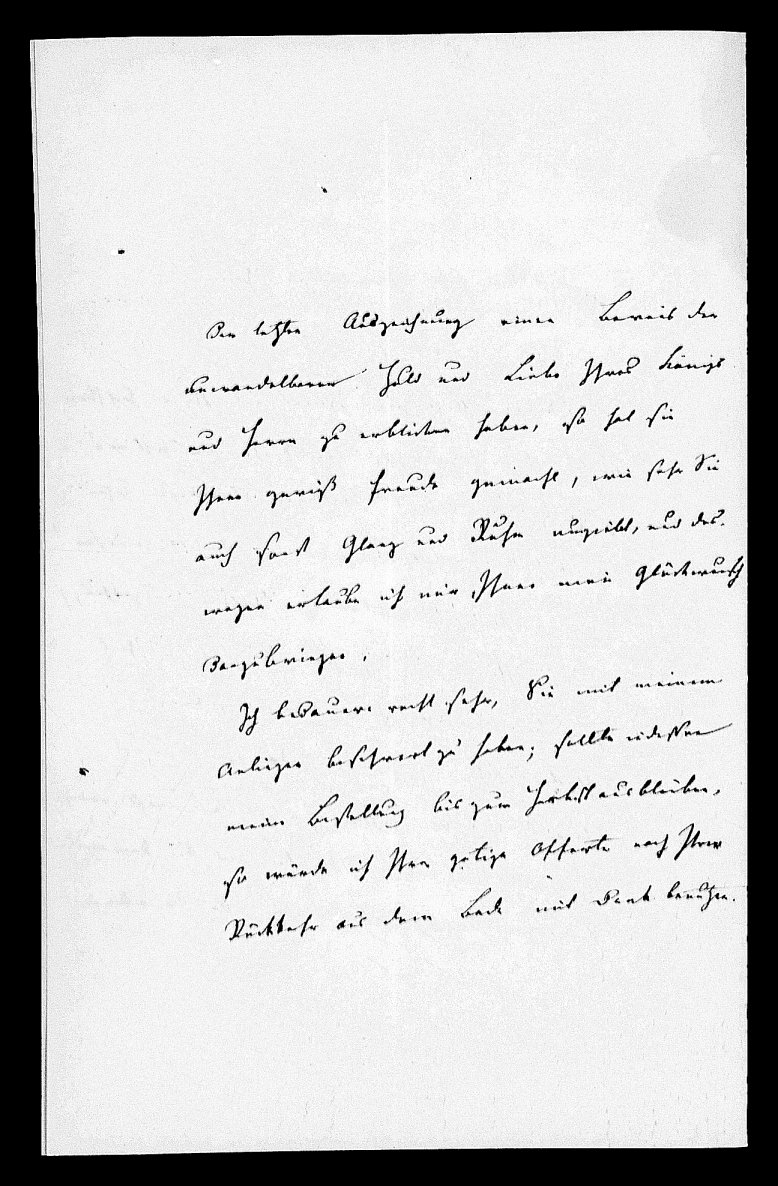 der letzten Auszeichnung einen Beweis der
unwandelbaren Huld und Liebe Ihres Königs
und Herrn zu erblicken haben, so hat sie
Ihnen gewiß Freude gemacht, wie sehr Sie
auch sonst Glanz und Ruhm umgiebt, und des-
wegen erlaube ich mir, Ihnen mein Glückwunsch
darzubringen.
Ich bedauere recht sehr, Sie mit meinem
Anliegen beschwert zu haben; sollte indessen
meine Bestellung bis zum Herbst ausbleiben,
so würde ich Ihre gütige Offerte nach Ihrer
Rückkehr aus dem Bade mit Dank benutzen.